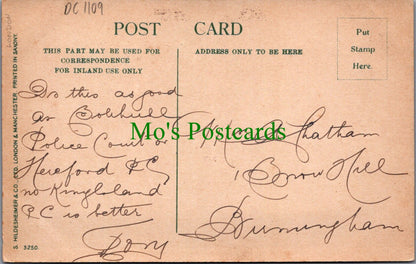 DC 1109
POST CARD
THIS PART MAY BE USED FOR
CORRESPONDENCE
FOR INLAND USE ONLY
ADDRESS ONLY TO BE HERE
Put
Stamp
Here.
S. HILDESHEIMER & CO. LTD. LONDON & MANCHESTER. PRINTED IN SAXONY.
5250.
Is this as good
as
Police Court or
Hereford P.C.
no Kingsland
P.C is better
Chatham
1 Snow Hill
Birmingham
Mo's Postcards